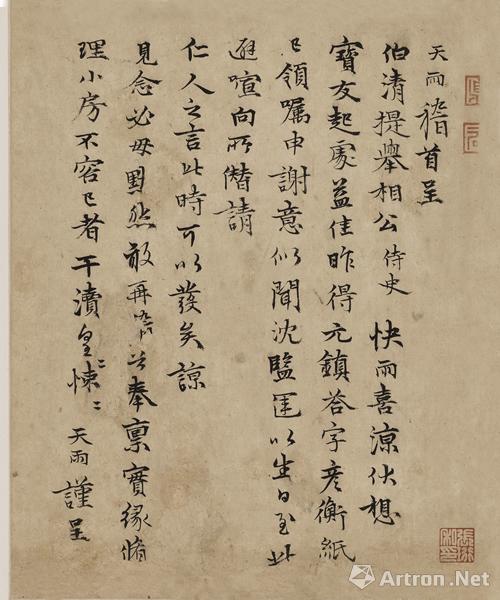 天雨稽首呈
伯清提舉相公侍史快雨喜凉伏想
寶友起處益佳昨得元鎮荅字彦衡紙
已領囑申謝意似聞沈監匡以生日至此
避喧向所僭請
仁人之言此時可以發矣諒
見念必毋罪然敢再喋上奉稟實緣脩
理小房不容已者干瀆皇〻悚〻
天雨謹呈
雅昌艺术网
Artron.Net